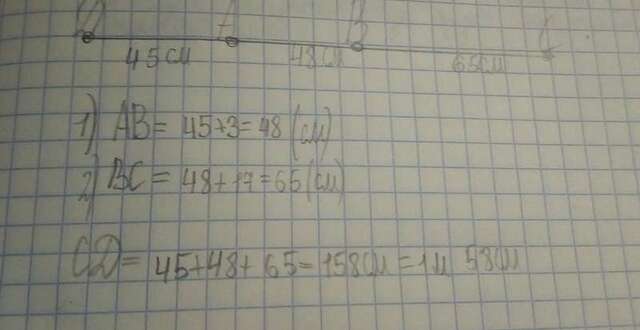 D A B C
45см 48см 65см
1) AB = 45+3=48 (см)
2) BC = 48+17=65 (см)
CD = 45+48+65=158см=1м 58см